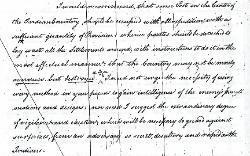 I would recommend, that some Post in the Center of
the Indian Country, should be occupied with all expedition, with a
sufficient quantity of Provisions; whence parties should be detached
to lay waste all the settlements around, with instructions to do it in the
most effectual manner, that the Country may not be merely
overrun, but destroyed. I need not urge the necessity of using
every method in your power to gain intelligence of the enemy's
making and design; nor need I suggest the extraordinary degree
of vigilance and caution, which will be necessary to guard against
surprises, from an adversary so secret, desultory and rapid as the
Indians.